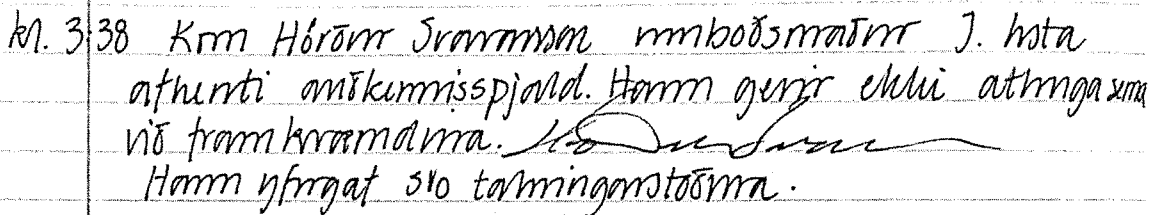 kl. 3:38 Kom Hörður Svavarsson umboðsmaður J. lista
afhenti auðkennisspjald. Hann gerir ekki athugasemd
við framkvæmdina.
Hann yfirgaf svo talningarstaðinn.